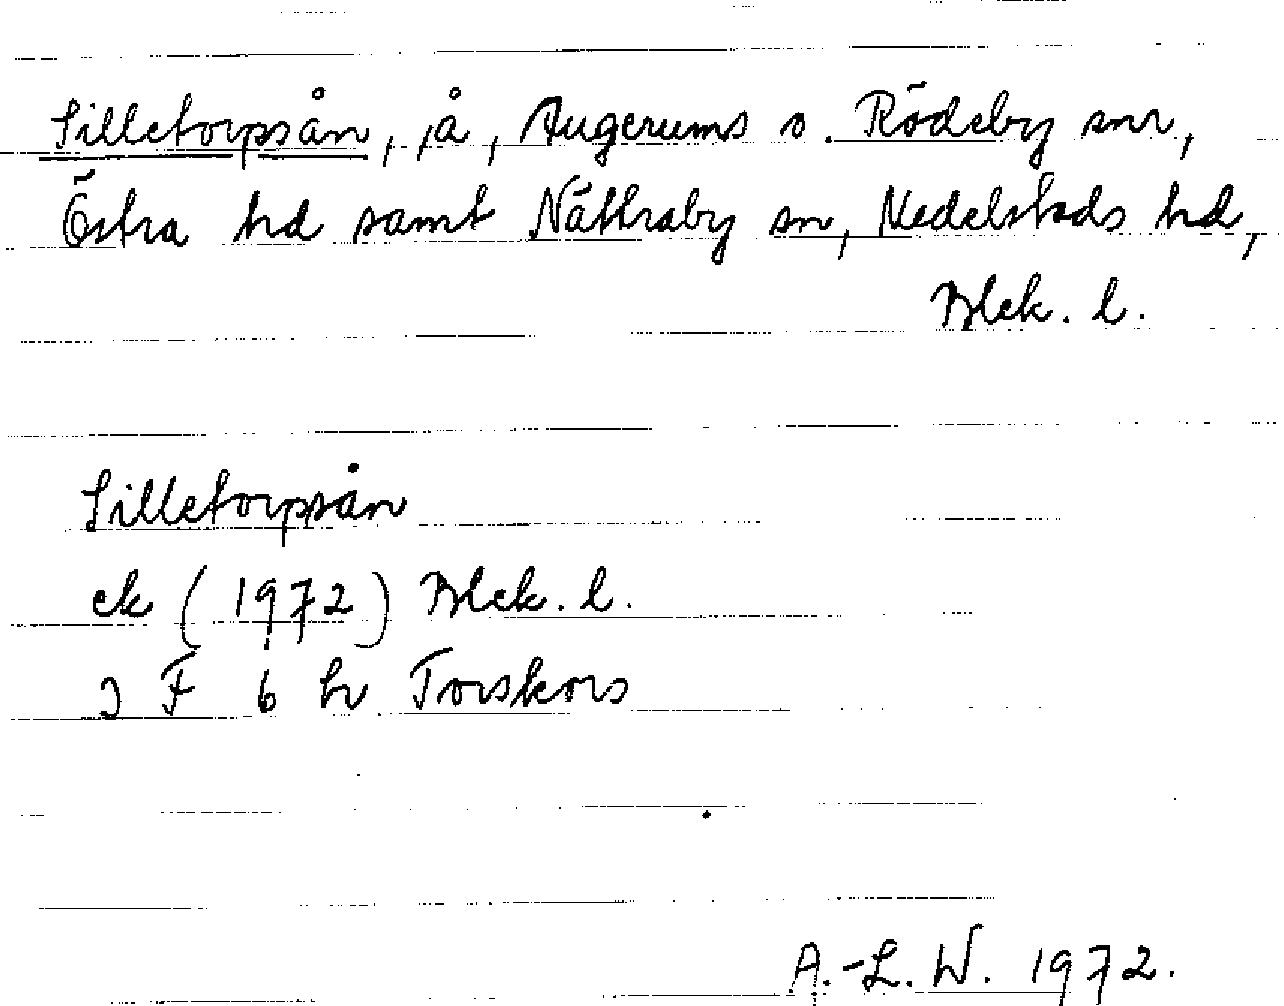 Silletorpsån, å, Augerums o. Rödeby snr,
Östra hd samt Nättraby sn, Medelstads hd,
Blek. l.
Silletorpsån
ek (1972) Blek. l.
3 F 6 h Torskors
A.-L. W. 1972.